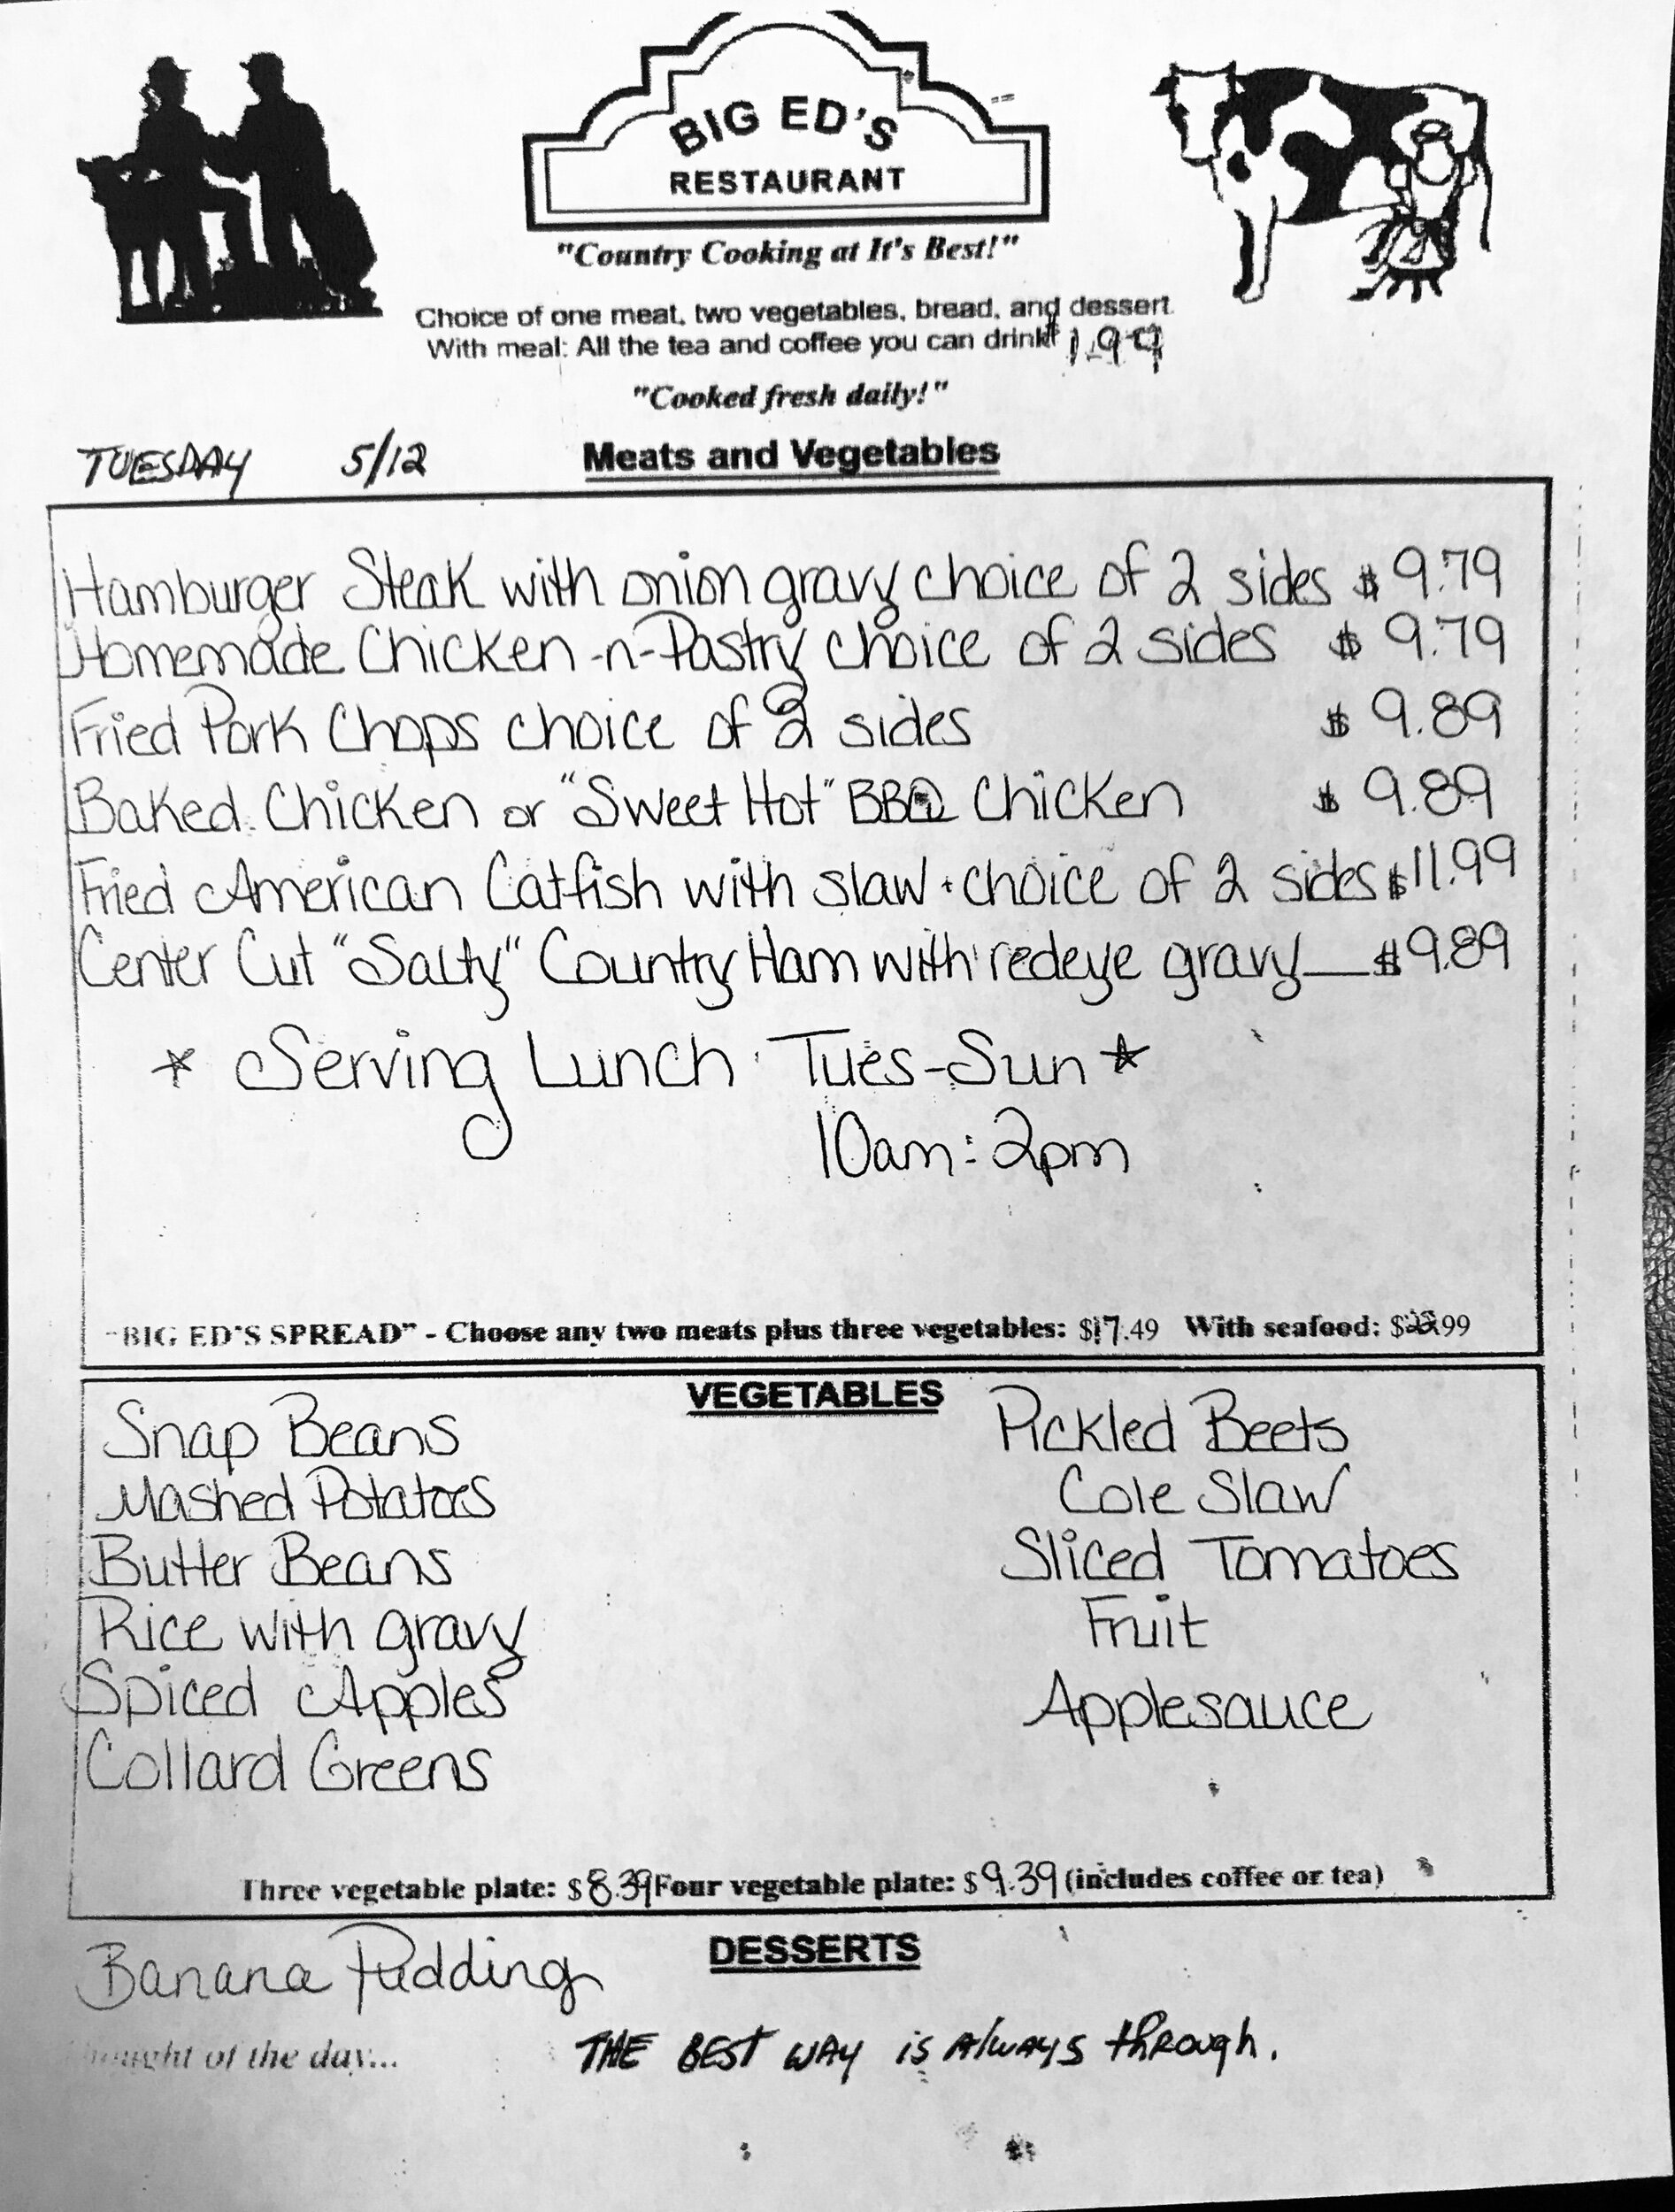 BIG ED'S
RESTAURANT
"Country Cooking at It's Best!"
Choice of one meat, two vegetables, bread, and dessert.
With meal: All the tea and coffee you can drink $1.99
"Cooked fresh daily!"
TUESDAY 5/12 Meats and Vegetables
Hamburger Steak with onion gravy choice of 2 sides $ 9.79
Homemade Chicken-n-Pastry choice of 2 sides $ 9.79
Fried Pork Chops choice of 2 sides $ 9.89
Baked Chicken or "Sweet Hot" BBQ Chicken $ 9.89
Fried American Catfish with slaw + choice of 2 sides $11.99
Center Cut "Salty" Country Ham with redeye gravy $9.89
* Serving Lunch Tues-Sun *
10am: 2pm
"BIG ED'S SPREAD" - Choose any two meats plus three vegetables: $17.49 With seafood: $ .99
VEGETABLES
Snap Beans
Mashed Potatoes
Butter Beans
Rice with gravy
Spiced Apples
Collard Greens
Pickled Beets
Cole Slaw
Sliced Tomatoes
Fruit
Applesauce
Three vegetable plate: $8.39 Four vegetable plate: $9.39 (includes coffee or tea)
DESSERTS
Banana Pudding
Thought of the day... THE BEST WAY is Always through.